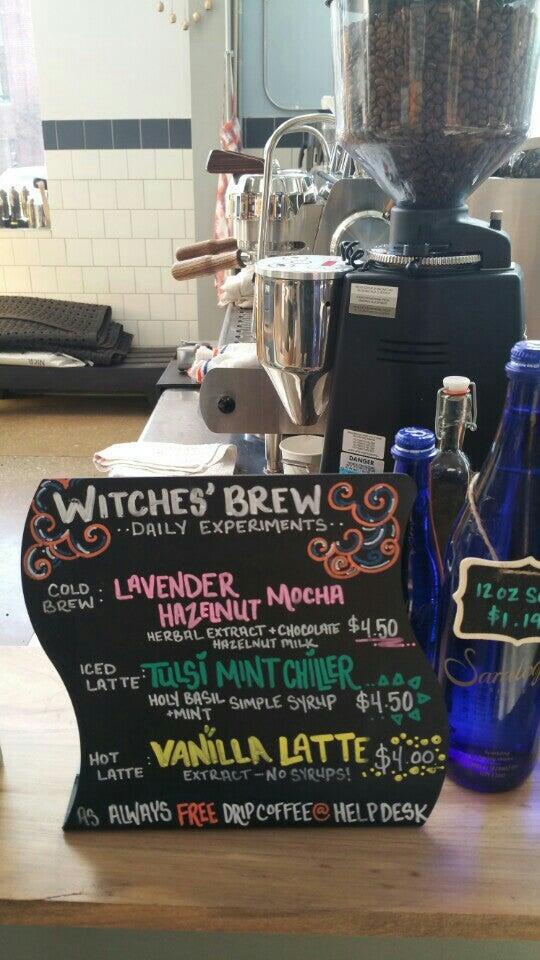 WITCHES' BREW
DAILY EXPERIMENTS
COLD BREW: LAVENDER HAZELNUT MOCHA
HERBAL EXTRACT + CHOCOLATE
HAZELNUT MILK
$4.50
ICED LATTE: TULSI MINT CHILLER
HOLY BASIL + MINT SIMPLE SYRUP
$4.50
HOT LATTE: VANILLA LATTE
EXTRACT - NO SYRUPS!
$4.00
AS ALWAYS FREE DRIP COFFEE @ HELP DESK
DANGER
12 OZ
$1.19